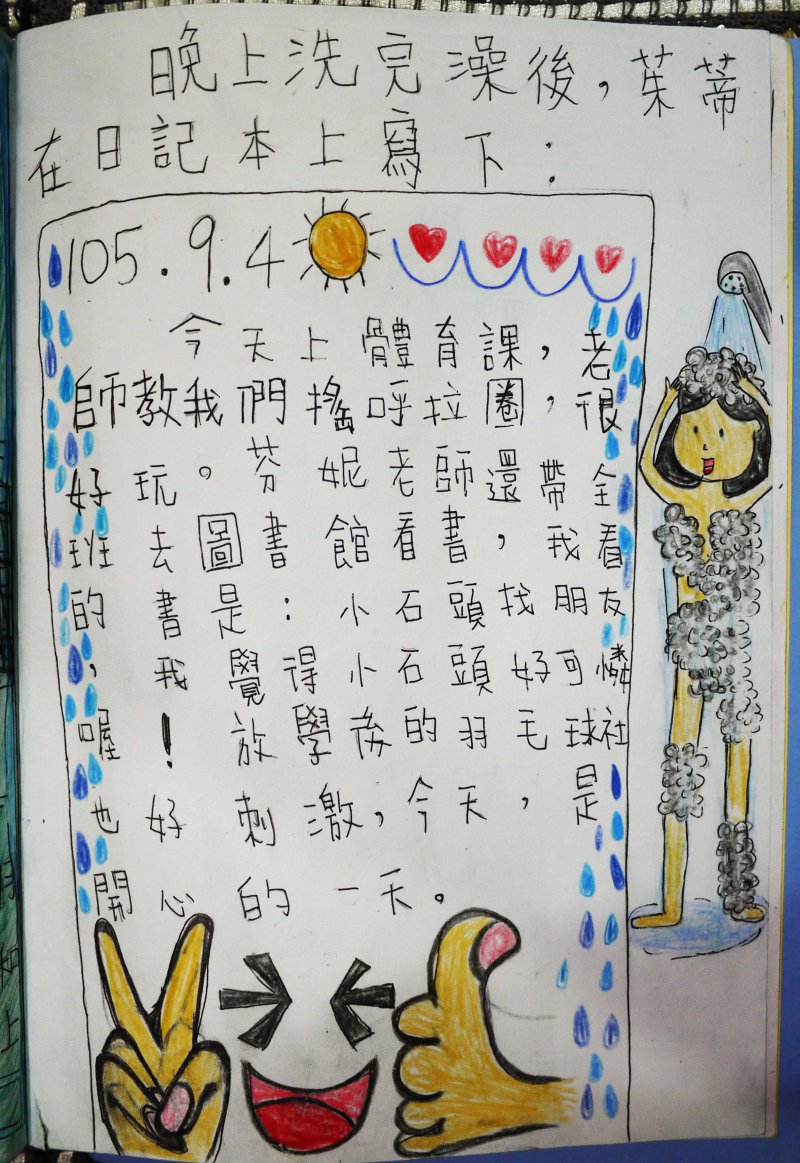 晚上洗完澡後，茱蒂
在日記本上寫下：
105.9.4
今天上體育課，老
師教我們搖呼拉圈，很
好玩。芬妮老師還帶全
班去圖書館看書，我看
的書是：小石頭找朋友
，我覺得小石頭好可憐
喔！放學後的羽毛球社
也好刺激，今天，是
開心的一天。